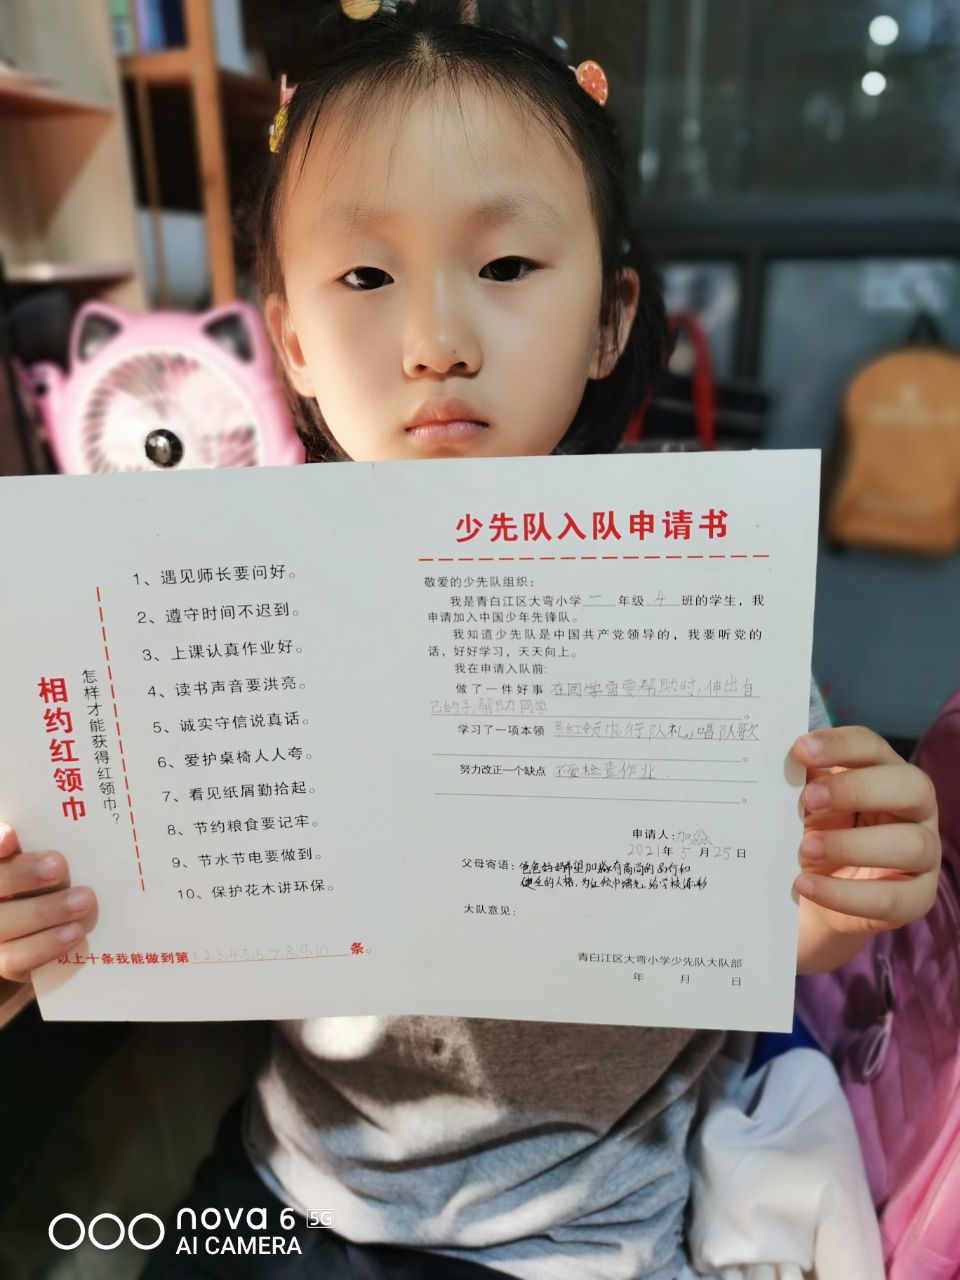 相约红领巾
怎样才能获得红领巾？
1、遇见师长要问好。
2、遵守时间不迟到。
3、上课认真作业好。
4、读书声音要洪亮。
5、诚实守信说真话。
6、爱护桌椅人人夸。
7、看见纸屑勤拾起。
8、节约粮食要记牢。
9、节水节电要做到。
10、保护花木讲环保。
以上十条我能做到第1.2.3.4.5.6.7.8.9.10条。
少先队入队申请书
敬爱的少先队组织：
我是青白江区大弯小学一年级4班的学生，我
申请加入中国少年先锋队。
我知道少先队是中国共产党领导的，我要听党的
话，好好学习，天天向上。
我在申请入队前：
做了一件好事在同学需要帮助时，伸出自
己的手帮助同学。
学习了一项本领系红领巾，行队礼，唱队歌
。
努力改正一个缺点不爱检查作业.
。
申请人：加淼
2021年5月25日
父母寄语：爸爸妈妈希望加淼有高尚的品行和
健全的人格，为红领巾增光，给学校添彩
大队意见：
青白江区大弯小学少先队大队部
年 月 日
nova 6 5G
AI CAMERA